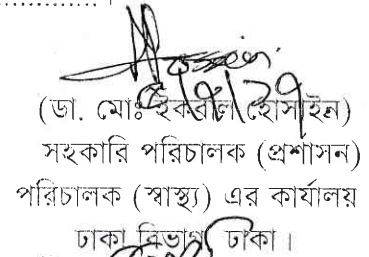 (ডা. মোঃ ইকবাল হোসাইন)
সহকারি পরিচালক (প্রশাসন)
পরিচালক (স্বাস্থ্য) এর কার্যালয়
ঢাকা বিভাগ ঢাকা।